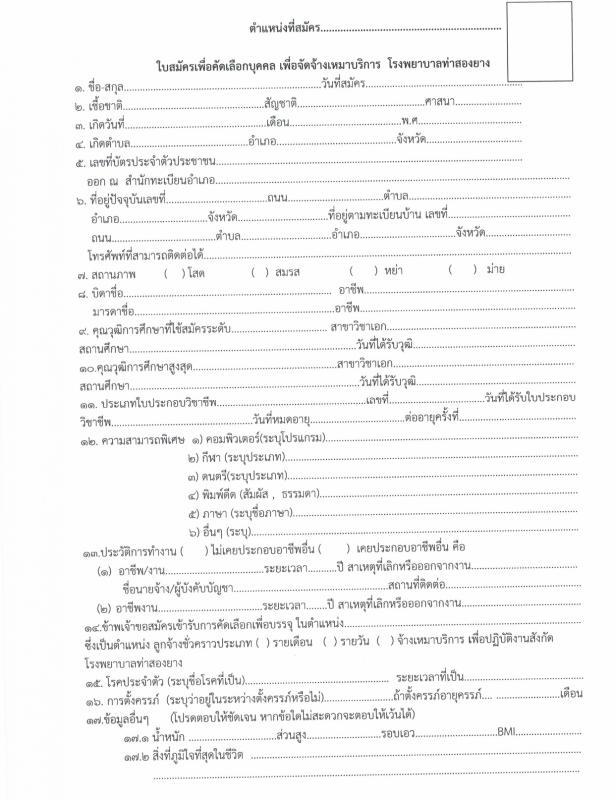 ตำแหน่งที่สมัคร............................................................
ใบสมัครเพื่อคัดเลือกบุคคล เพื่อจัดจ้างเหมาบริการ โรงพยาบาลท่าสองยาง
๑. ชื่อ-สกุล............................................................วันที่สมัคร................................................
๒. เชื้อชาติ...........................................สัญชาติ.......................................ศาสนา....................
๓. เกิดวันที่...........................................เดือน..................................พ.ศ................................
๔. เกิดตำบล....................................อำเภอ.....................................จังหวัด.............................
๕. เลขที่บัตรประจำตัวประชาชน..............................................................................................
ออก ณ สำนักทะเบียนอำเภอ............................................................................................................
๖. ที่อยู่ปัจจุบันเลขที่...............................ถนน.............................ตำบล..................................................
อำเภอ...........................จังหวัด............................ที่อยู่ตามทะเบียนบ้าน เลขที่.....................................
ถนน................................ตำบล............................อำเภอ.....................................จังหวัด..........................
โทรศัพท์ที่สามารถติดต่อได้................................................................................................................
๗. สถานภาพ ( ) โสด ( ) สมรส ( ) หย่า ( ) ม่าย
๘. บิดาชื่อ............................................................... อาชีพ...............................................................
มารดาชื่อ.............................................................อาชีพ.................................................................
๙. คุณวุฒิการศึกษาที่ใช้สมัครระดับ............................. สาขาวิชาเอก.........................................................
สถานศึกษา.....................................................................วันที่ได้รับวุฒิ..................................................
๑๐.คุณวุฒิการศึกษาสูงสุด............................................สาขาวิชาเอก.......................................................
สถานศึกษา......................................................................วันที่ได้รับวุฒิ.................................................
๑๑. ประเภทใบประกอบวิชาชีพ..............................................เลขที่.............................วันที่ได้รับใบประกอบ
วิชาชีพ...........................................วันที่หมดอายุ.............................ต่ออายุครั้งที่....................................
๑๒. ความสามารถพิเศษ ๑) คอมพิวเตอร์(ระบุโปรแกรม)............................................................................
๒) กีฬา (ระบุประเภท).........................................................................................
๓) ดนตรี(ระบุประเภท)........................................................................................
๔) พิมพ์ดีด (สัมผัส , ธรรมดา)..............................................................................
๕) ภาษา (ระบุชื่อภาษา)......................................................................................
๖) อื่นๆ (ระบุ)...................................................................................................
๑๓.ประวัติการทำงาน ( ) ไม่เคยประกอบอาชีพอื่น ( ) เคยประกอบอาชีพอื่น คือ
(๑) อาชีพ/งาน..............................ระยะเวลา.........ปี สาเหตุที่เลิกหรือออกจากงาน................................
ชื่อนายจ้าง/ผู้บังคับบัญชา...............................................สถานที่ติดต่อ.........................................
(๒) อาชีพงาน................................ระยะเวลา.......ปี สาเหตุที่เลิกหรือออกจากงาน...................................
๑๔.ข้าพเจ้าขอสมัครเข้ารับการคัดเลือกเพื่อบรรจุ ในตำแหน่ง........................................................................
ซึ่งเป็นตำแหน่ง ลูกจ้างชั่วคราวประเภท ( ) รายเดือน ( ) รายวัน ( ) จ้างเหมาบริการ เพื่อปฏิบัติงานสังกัด
โรงพยาบาลท่าสองยาง
๑๕. โรคประจำตัว (ระบุชื่อโรคที่เป็น)............................................ ระยะเวลาที่เป็น....................................
๑๖. การตั้งครรภ์ (ระบุว่าอยู่ในระหว่างตั้งครรภ์หรือไม่).....................ถ้าตั้งครรภ์อายุครรภ์.... ....................เดือน
๑๗.ข้อมูลอื่นๆ (โปรดตอบให้ชัดเจน หากข้อใดไม่สะดวกจะตอบให้เว้นได้)
๑๗.๑ น้ำหนัก ...........................ส่วนสูง.......................รอบเอว..........................BMI....................
๑๗.๒ สิ่งที่ภูมิใจที่สุดในชีวิต ....................................................................................................
..................................................................................................................................